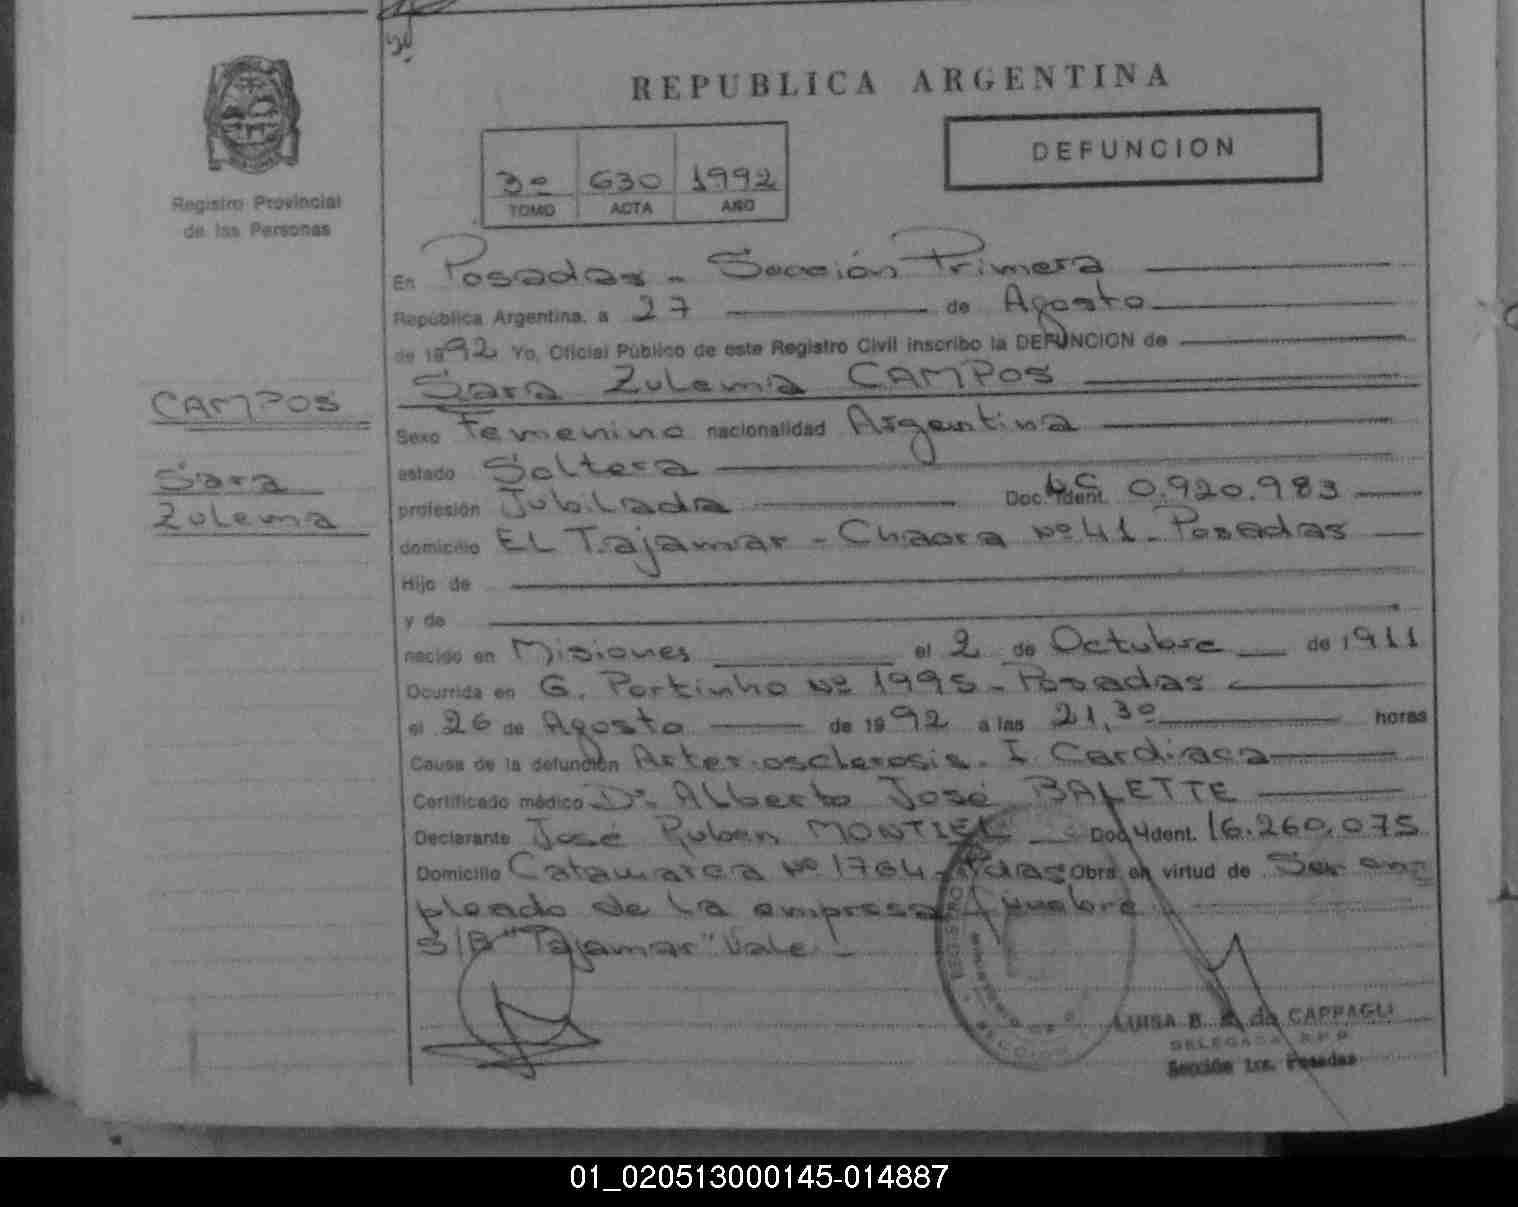 REPUBLICA ARGENTINA
DEFUNCION
3º 630 1992
TOMO ACTA AÑO
Registro Provincial
de las Personas
En Posadas - Sección Primera
República Argentina, a 27 de Agosto
de 1992 Yo, Oficial Público de este Registro Civil inscribo la DEFUNCION de
Sara Zulema CAMPOS
CAMPOS
Sara
Zulema
Sexo Femenino nacionalidad Argentina
estado Soltera
profesión Jubilada Doc. Ident. LC 0.920.983
domicilio EL Tajamar - Chacra Nº 41 - Posadas
Hijo de
y de
nacido en Misiones el 2 de Octubre de 1911
Ocurrida en G. Portinho Nº 1995 - Posadas
el 26 de Agosto de 1992 a las 21,30 horas
Causa de la defunción Arteriosclerosis - I. Cardiaca
Certificado médico Dr. Alberto José BALETTE
Declarante José Ruben MONTIEL Doc. Ident. 16.260.075
Domicilio Catamarca Nº 1764 - Pdas Obra en virtud de Ser em-
pleado de la empresa fúnebre
S/B "Tajamar" Vale!-
LUISA B. de CAPPAGLI
DELEGADA R.P.P.
Sección 1ra. Posadas
01_020513000145-014887